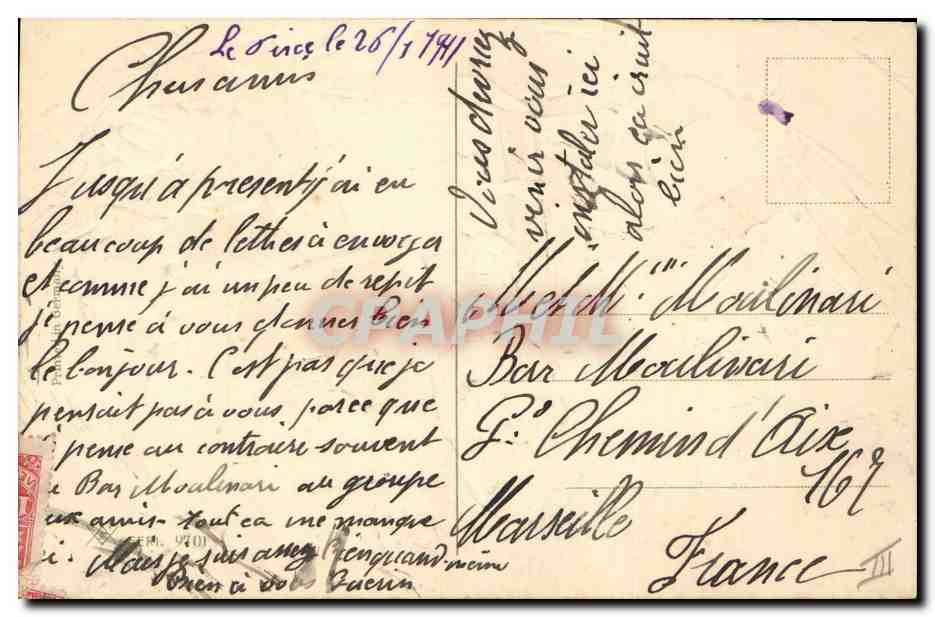 le 26/1 1911
Chers amis
Jusqu'à present j'ai eu
beaucoup de lettres à envoyer
et comme j'ai un peu de repit
je pense à vous donner bien
le bonjour. C'est pas que je
pensait pas à vous, parce que
pense au contraire souvent
Bar Moulinari au groupe
amis tout ca me manque
Mais je suis assez bien quand-même
Bien à vous Guerin
Vous devriez
venir vous
installer ici
alors ça irait
bien
M et Mme Moulinari
Bar Moulinari
Gd Chemin d'Aix
167
Marseille
France
III
Printed in Germany
SERI. 9701
CPAPHIL